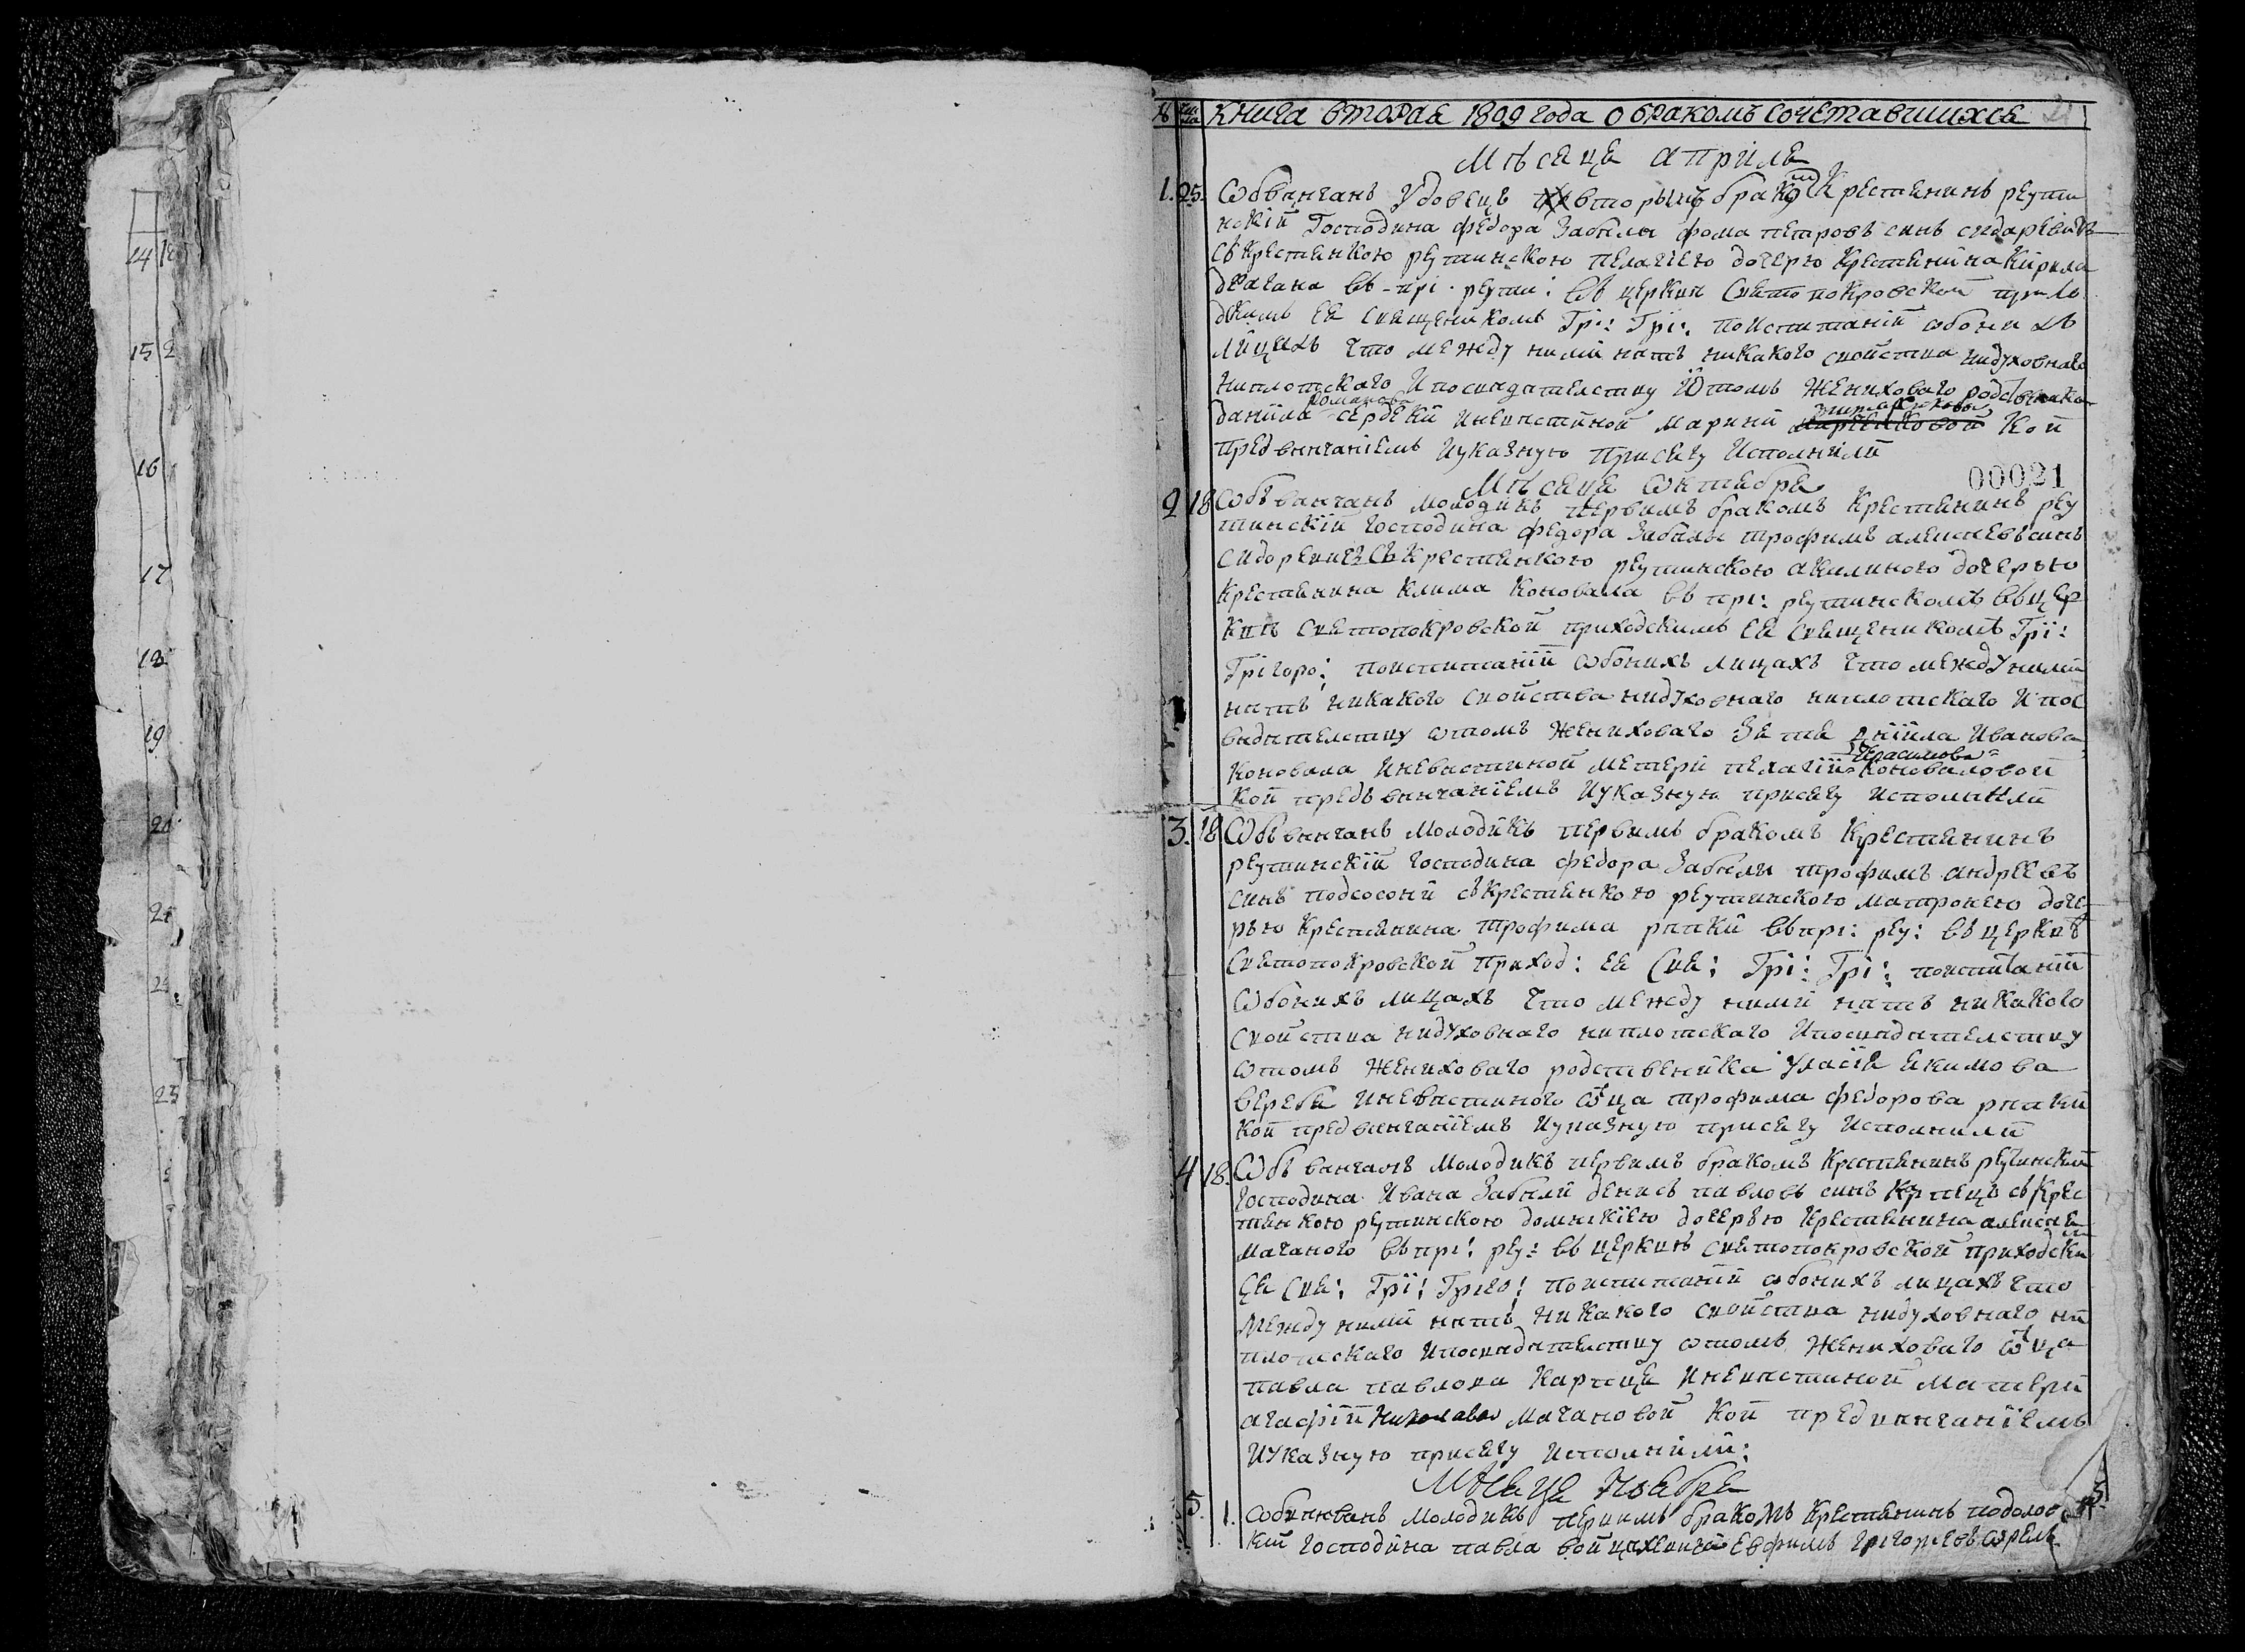 № чис ла книга вторая 1809 года о бракомъ сочетавшихся 21
Мѣсяца априля
1. 25. Обвѣнчанъ удовецъ вторымъ бракомъ крестянинъ реути
нскїй Господина федора Забелы фома петровъ синъ сидоревичъ
съ крестянкою реутинскою пелагіею дочерю крестянина кирила
въ прі: реути: въ церкви святопокровской прихо
дкимъ ея священикомъ Грі: Грі: поиспитанїи обоихъ
лицахъ что между ними нѣтъ никакого свойства нидуховнаго
ниплотскаго и посвидѣтелству отомъ жениховаго родственика
данїила Романова сердеки иневѣстиной марини кои
предвѣнчанїемъ иуказную присягу исполнили
00021
Мѣсяца октября
2 18 Обвѣнчанъ молодикъ первимъ бракомъ крестянинъ реу
тинскїй господина федора Забелы трофимъ алексѣевъ синъ
сидоренцъ съ крестянкою реутинскою акилиною дочерью
крестянина клима коновала въ прі: реутинскомъ въ цер
квѣ святопокровской приходскимъ ея священикомъ Грї:
Грїгоро: поиспитанїи обоихъ лицахъ что между ними
нѣтъ никакого свойства нидуховнаго ниплотскаго и пос
видѣтелству отомъ жениховаго зятя днїила иванова
коновала иневѣстиной метери пелагїи Герасимова коноваловой
кои предъ вѣнчанїемъ иуказную присягу исполнили
3. 18 Объвѣнчанъ молодикъ первимъ бракомъ крестянинъ
реутинскїй господина федора Забелы трофимъ андреевъ
синъ подсосоній съ крестянкою реутинскою матроною доче
рью крестянина трофима рѣпки въ прі: реу: въ церквѣ
святопокровской приход: ея свя: Грі: Грі: поиспитанїи
обоихъ лицахъ что между ними нѣтъ никакого
свойства нидуховнаго ниплотскаго и посвидѣтелству
отомъ жениховаго родственика уласія якимова
веребя иневѣстиного отца трофима федорова рѣпки
кои предвѣнчанїемъ иуказную присягу исполнили
4 18. Объ вѣнчанъ молодикъ первимъ бракомъ крестянинъ реутинский
господина ивана Забели денисъ павловъ синъ карпецъ съ крес
тянкою реутинскою домникїею дочерью крестянина алексѣя
маганого въ прі: реу: въ церквѣ святопокровской приходским
ея свя: Грї: Григо: поиспитанїи обоихъ лицахъ что
между ними нѣтъ никакого свойства нидуховнаго ни
плотскаго и посвидѣтелству отомъ жениховаго отца
павла павлова карпеця иневѣстиной матери
агафїи Николаево магановой кои предвѣнчанїемъ
иуказную присягу исполнили:
Мѣсяца Ноября
5. 1. Обвѣнчанъ молодикъ первимъ бракомъ крестянинъ подолов
кій господина павла евфимъ григоревъ
14
15 2
16
17
18
19
20
23